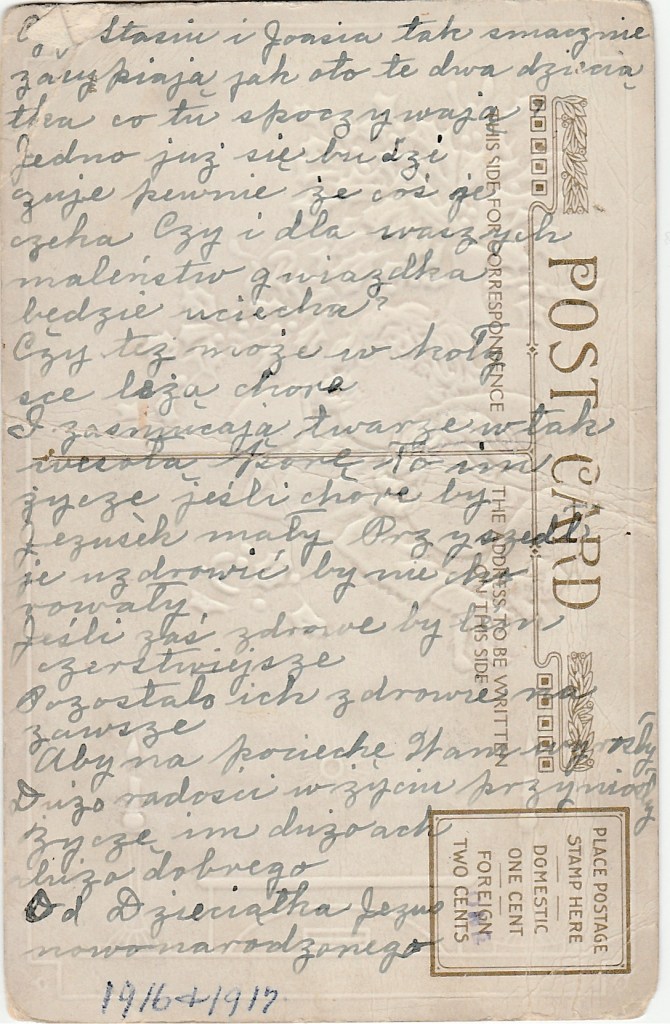 Czy Stasiu i Joasia tak smacznie
zasypiają jak oto te dwa dziecią
tka co tu spoczywają
Jedno już się budzi
czuje pewnie że coś je
czeka Czy i dla waszych
maleństw gwiazdka
będzie uciecha?
Czy też może w koły
sce leżą chore
I zasmucają twarze w tak
wesołą porę To im
życzę jeśli chore by
Jezusek mały Przyszedł
je uzdrowić by nie cho
rowały
Jeśli zaś zdrowe by tem
czerstwiejsze
Pozostało ich zdrowie na
zawsze
Aby na pociechę Wam wyrosły
Dużo radości w życiu przyniosły
życzę im dużo ach
dużo dobrego
Od Dzieciątka Jezus
nowonarodzonego
1916 + 1917
POST CARD
THIS SIDE FOR CORRESPONDENCE
THE ADDRESS TO BE WRITTEN
ON THIS SIDE
PLACE POSTAGE
STAMP HERE
DOMESTIC
ONE CENT
FOREIGN
TWO CENTS